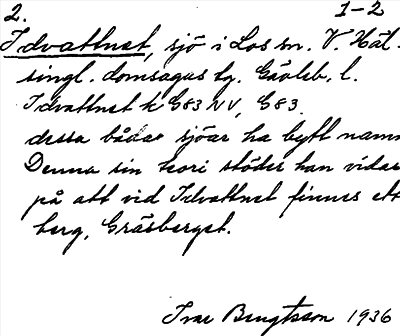 2. 1-2
Idvattnet, sjö i Los sn. V. Häl-
singl. domsagas tg. Gävleb. l.
Idvattnet k G83 NV, G83
dessa bådas sjöar ha bytt namn
Denna sin teori stöder han vidare
på att vid Idvattnet finnes ett
berg, Gräsberget.
Ivar Bengtsson 1936